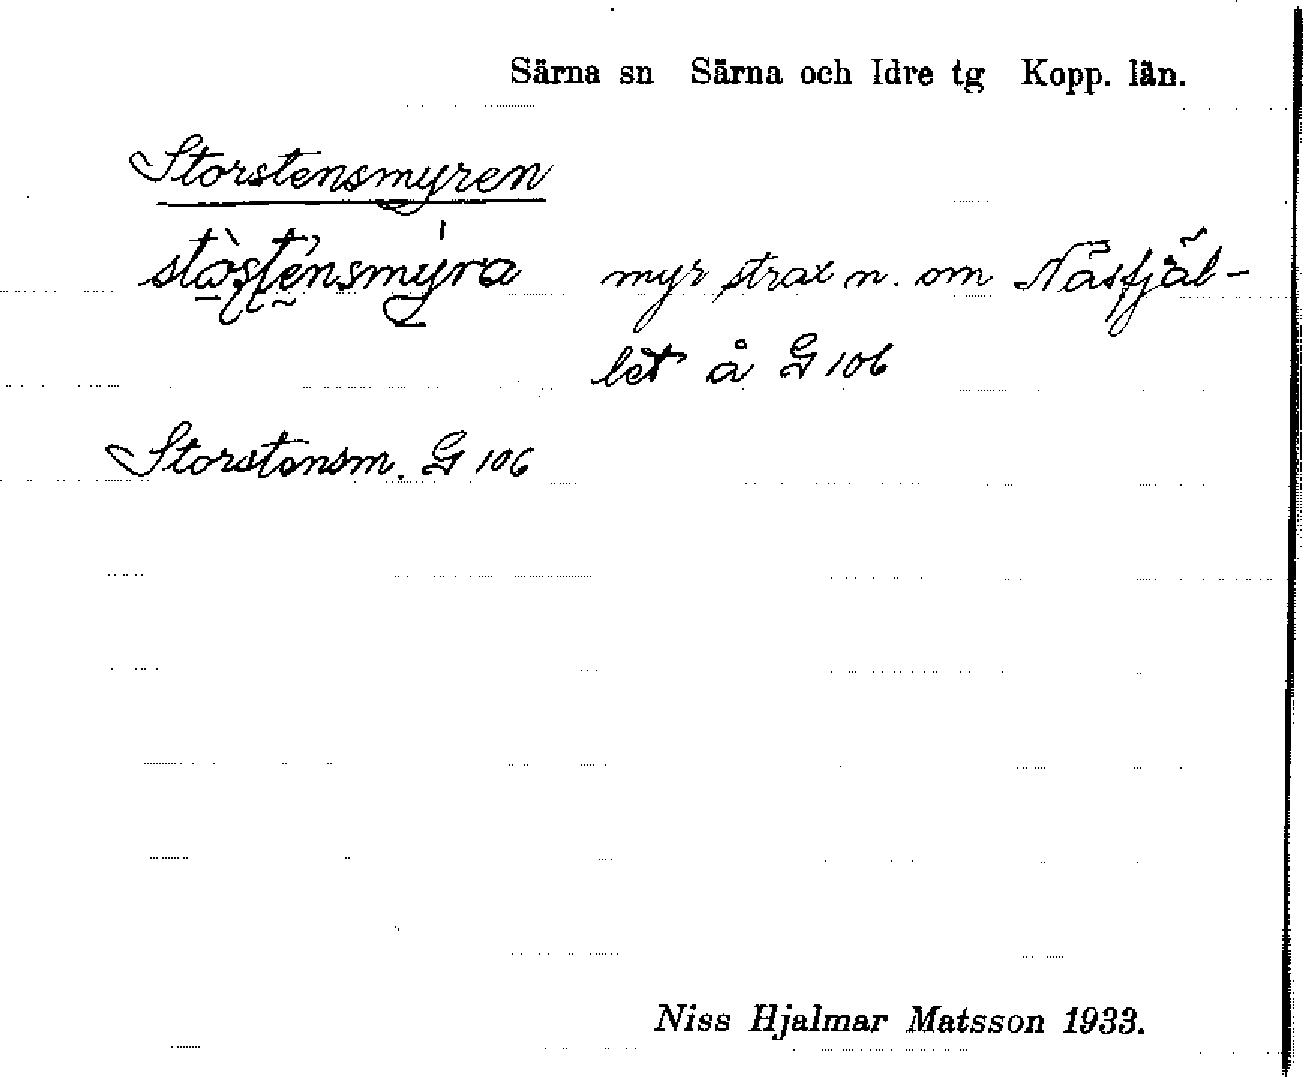 Särna sn Särna och Idre tg Kopp. län.
Storstensmyren
stòsténsmýra myr strax n. om Nåsfjäl-
let å G 106
Storstensm. G 106
Niss Hjalmar Matsson 1933.